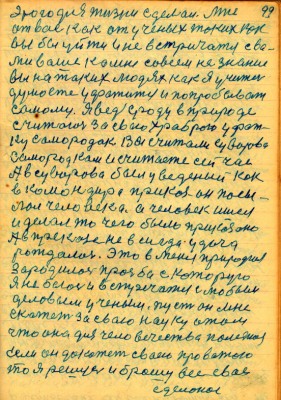 99
этого для жизни сделал. Мне
от вас как от ученых таких как
вы бы уйти и не встречатся с ва-
ми ваше
вы на таких людях как я учитесь
думаете ударить и попробывать
самому. Я ведь сроду в природе
считался за своего храброго
самородок. Вы считали Суворова
самородкам и считаете сейчас
А в суворова был у ведений как
в командира приказ он посы-
лал человека. а человек шел
и делал то чего было приказано
А в приказе не всегда удача
рождалася. Это в меня природой
Зародилась прозьба с которую
Я не боюся и встречатся с любым
деловым ученым. пуст он мне
скажет за свою науку о том
что она для человечества полезная
если он докажет своею правотою
то я решуся и брошу все свое
сделаное